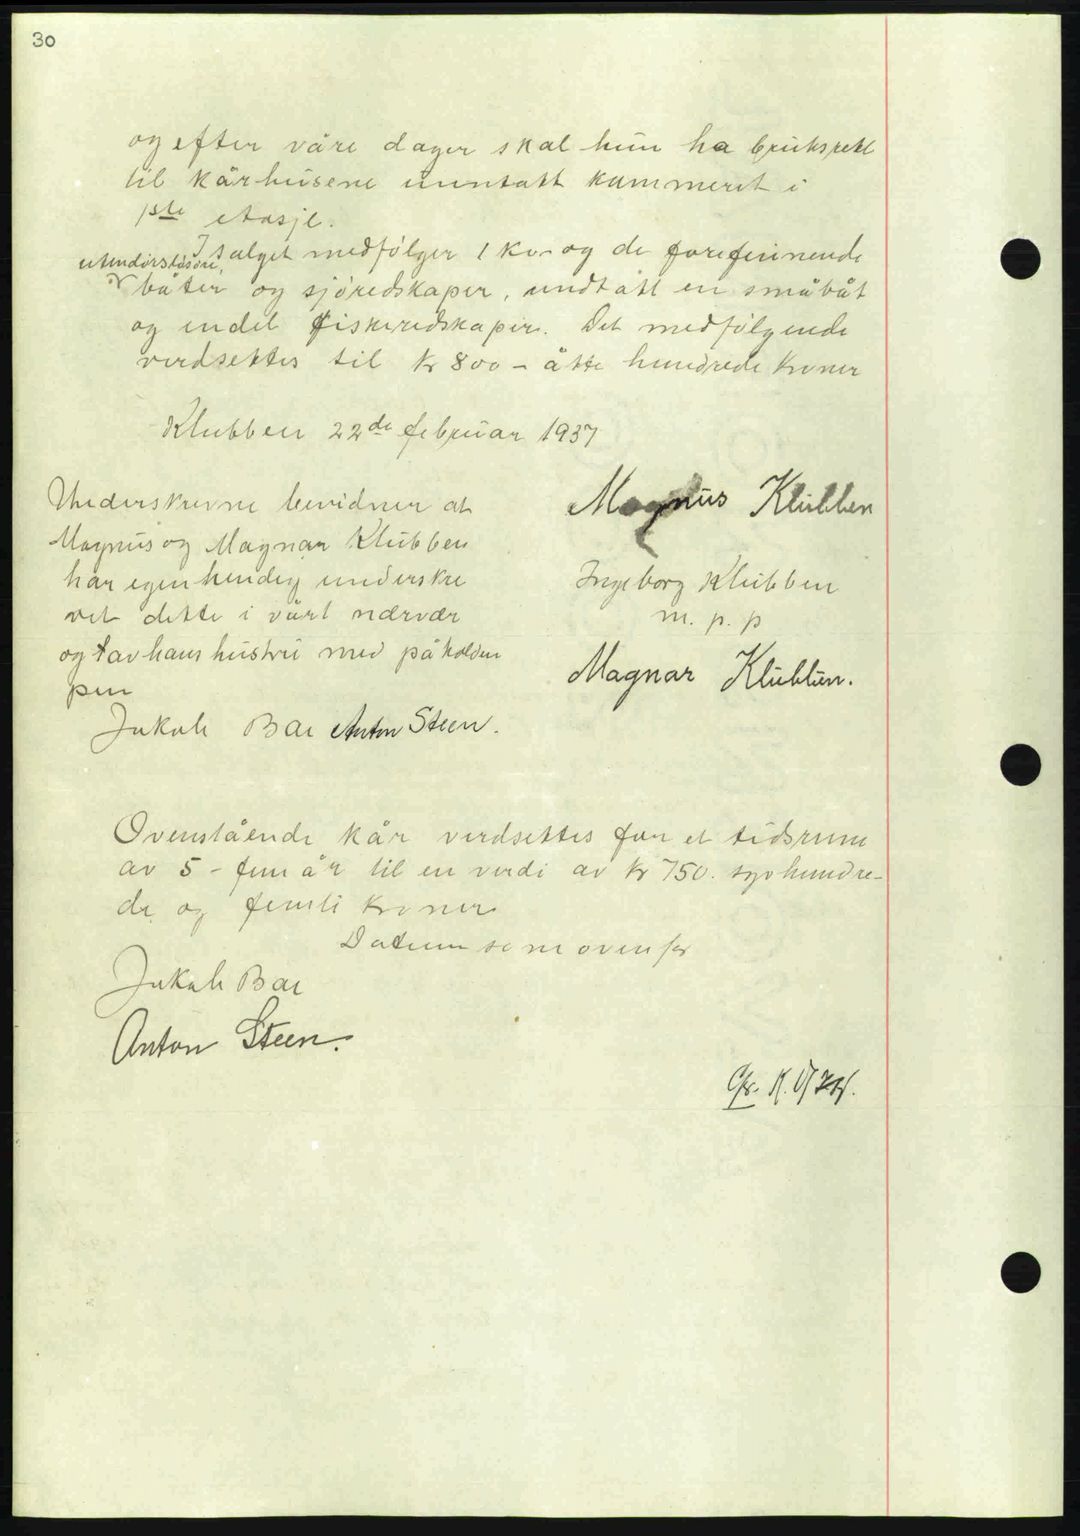 30
og efter våre dager skal hun ha bruksrett
til kårhusene unntatt kammeret i
1ste etasje.
I salget medfølger 1 ku og de forefinnende
utendørsløsøre,
båter og sjøredskaper, undtatt en småbåt
og endel fiskeredskaper. Det medfølgende
verdsettes til kr 800 - åtte hundrede kroner
Klubben 22de februar 1937
Underskrevne bevidner at
Magnus og Magnar Klubben
har egenhendig underskre
vet dette i vårt nærvær
og av hans hustru med påholden
pen
Jakob Bae Anton Steen.
Magnus Klubben
Ingeborg Klubben
m. p. p
Magnar Klubben.
Ovenstående kår verdsettes for et tidsrum
av 5 - fem år til en verdi av kr 750. syvhundre-
de og femti kroner
Datum som ovenfor
Jakob Bae
Anton Steen.